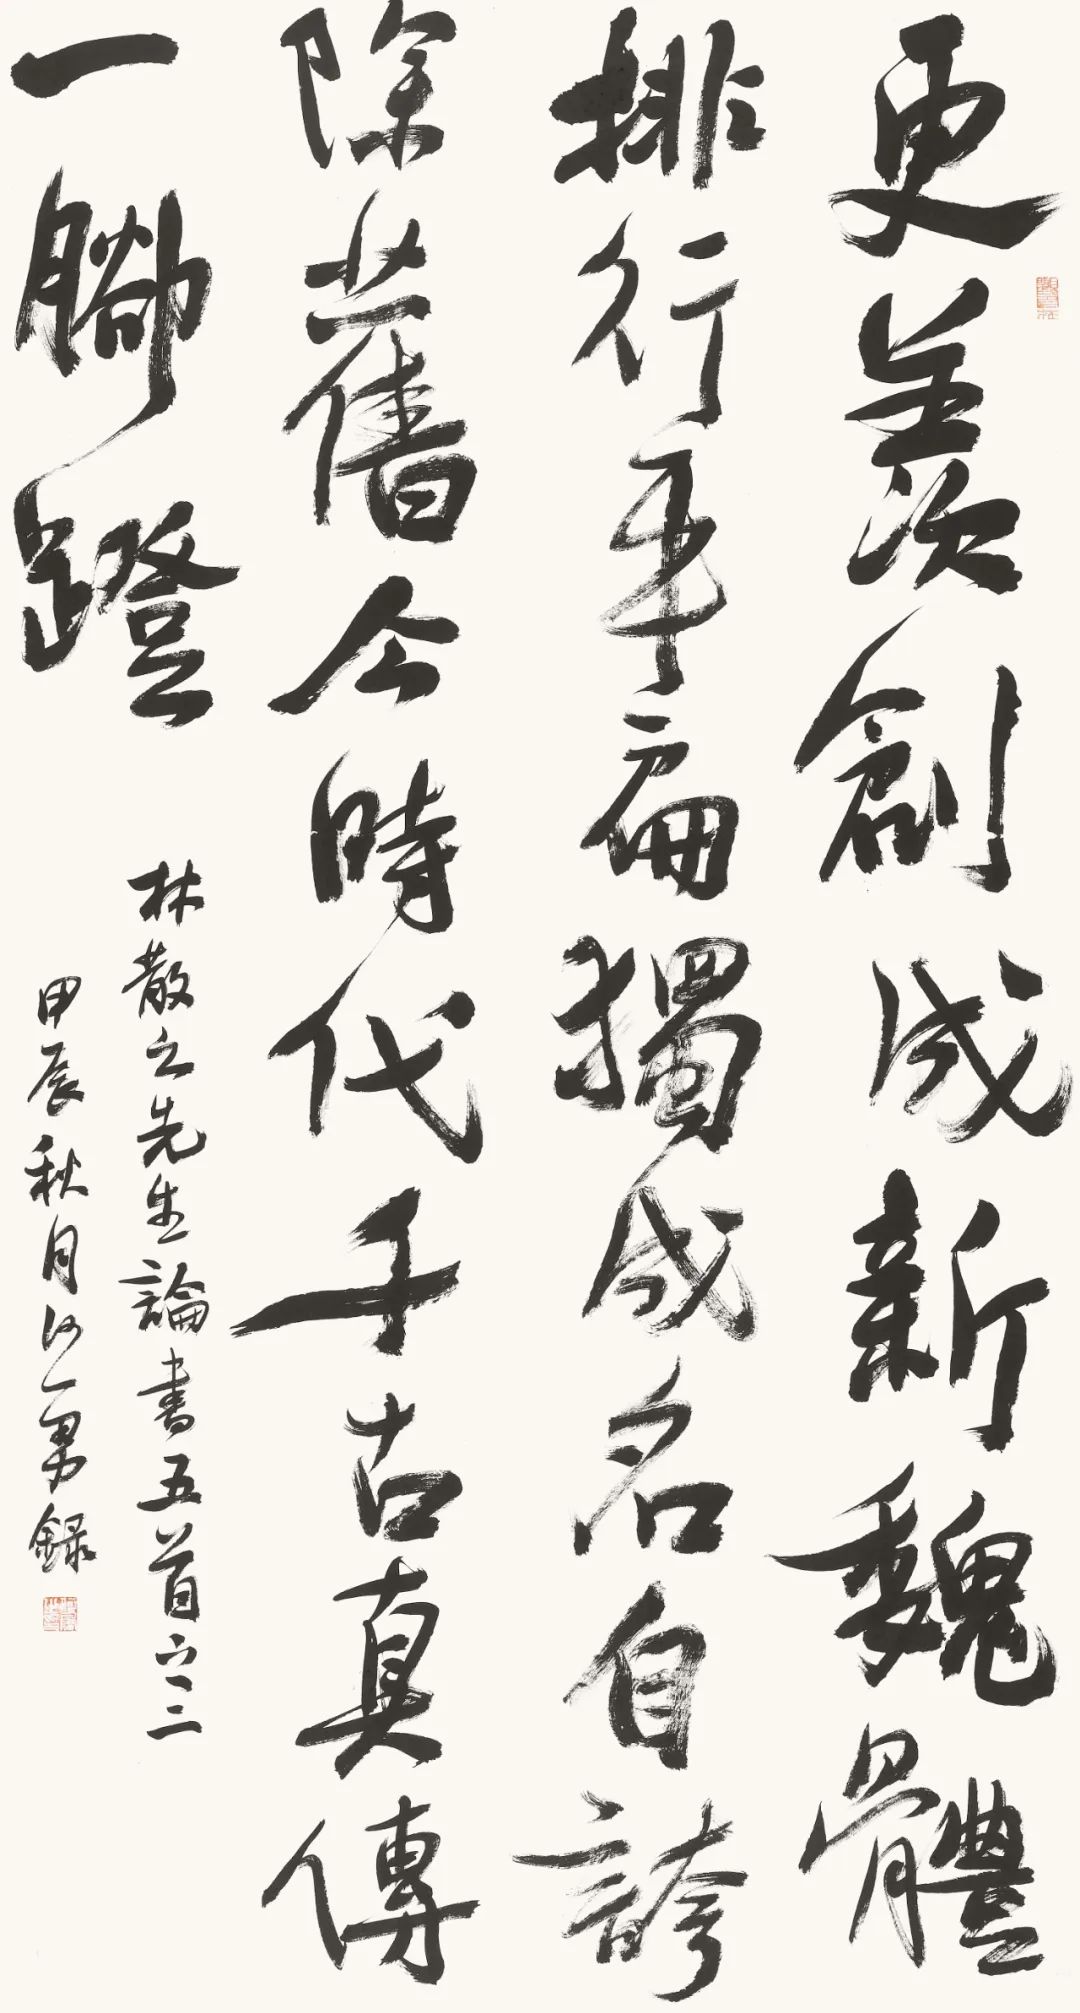 更羨創成新魏體
排行平扁獨成名自誇
除舊今時代千古真傳
一腳蹬
林散之先生論書五首之二
甲辰秋月沙一男錄